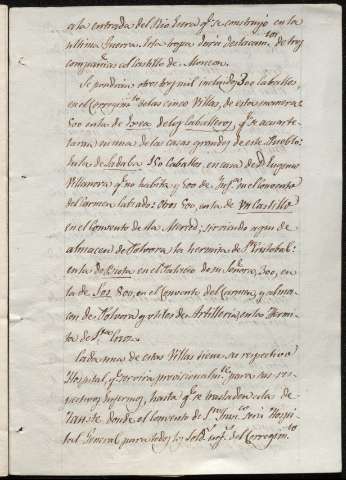 a la entrada del Rio Ezera qᵉ. se construyò en la
ultima Guerra. Esta tropa darà destacamᵗᵒˢ. de tres
compañias al Castillo de Monzon.
Se pondràn otros tres mil incluidos 300 Caballos,
en el Corregimᵗᵒ. de las cinco Villas, de esta manera:
500 en la de Exea de los Caballeros, qᵉ. se acuarte-
laràn en una de las casas grandes de este Pueblo:
En la de Sadaba 150 Caballos, en casa de Dⁿ. Eugenio
Villanova qᵉ. no habita, y 500 de Infᵃ. en el Convento
del Carmen Calzado: Otros 500 en la de Un Castillo
en el Convento de la Merced; sirviendo aqui de
almacen de Polvora la hermita de Sⁿ. Cristobal:
en la de Biota en el Palacio de su Señora, 300, en
la de Sos 800, en el Convento del Carmen, y alma-
cen de Polvora y utiles de Artilleria, en la Hermi-
ta de Sᵗᵃ.
Cada una de estas Villas tiene su respectivo
Hospital, qᵉ. servirà provisionalmᵗᵉ. para sus res-
pectivos enfermos, hasta qᵉ. se trasladen à la de
Tauste, donde el Convento de Sⁿ. Franᶜᵒ. serà Hospi-
tal General para todos los Soldˢ. enfˢ. del Corregimᵗᵒ.